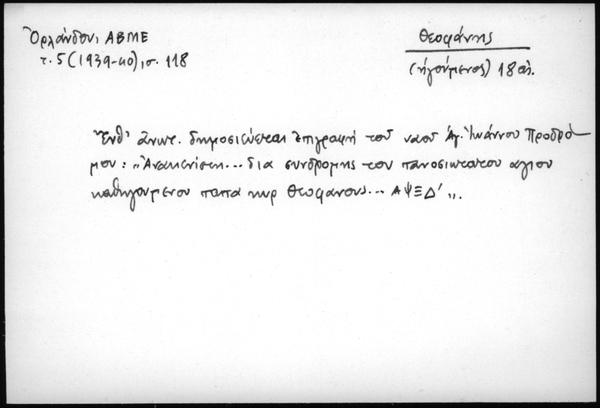 Ὀρλάνδου, ΑΒΜΕ
τ. 5 (1939-40), σ. 118
Θεοφάνης
(ἡγούμενος) 18 αἰ.
Ἔνθ' ἄνωτ. δημοσιεύεται ἐπιγραφή τοῦ ναοῦ Ἁγ. Ἰωάννου Προδρό
μου: „Ἀνακενίσθη... δια συνδρομης του πανοσιωτατου αγιου
καθηγουμενου παπα κυρ Θεοφανους... ΑΨΞΔ' „.